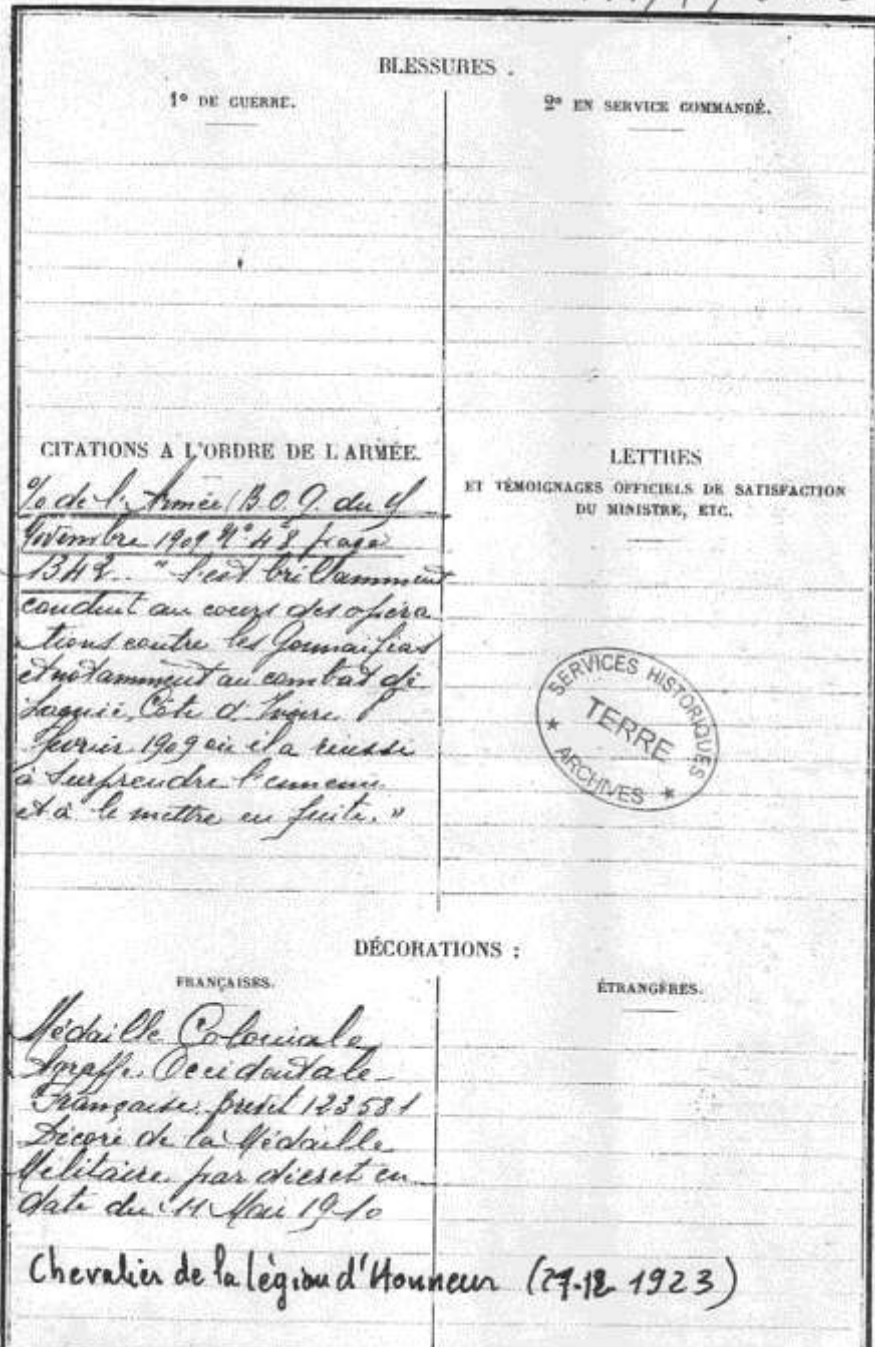 BLESSURES :
1° DE GUERRE.
2° EN SERVICE COMMANDÉ.
CITATIONS A L'ORDRE DE L'ARMÉE.
de l'Armée (B.O.G. du
Novembre 1909 N° 48 page
1342. "S'est brillamment
conduit au cours des opéra
tions contre les
et notamment au combat de
Côte d'Ivoire
février 1909 où il a réussi
à surprendre l'ennemi
et à le mettre en fuite."
LETTRES
ET TÉMOIGNAGES OFFICIELS DE SATISFACTION
DU MINISTRE, ETC.
SERVICES HISTORIQUES
TERRE
ARCHIVES
DÉCORATIONS :
FRANÇAISES.
ÉTRANGÈRES.
Médaille Coloniale
Agraffe Occidentale
Française brevet 123581
Décoré de la Médaille
Militaire par décret en
date du 11 Mai 1910
Chevalier de la légion d'Honneur (27-12 1923)